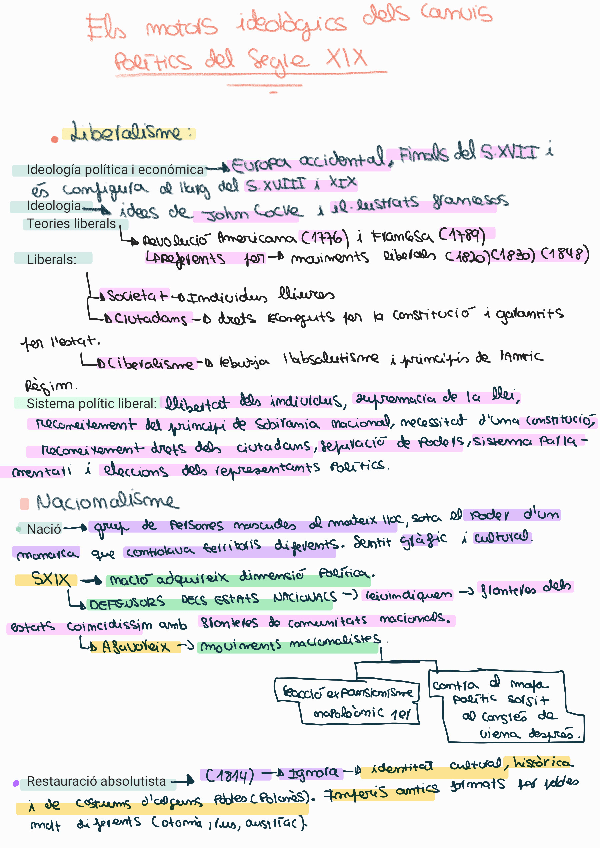 Els motors ideològics dels canvis
Polítics del Segle XIX
• Liberalisme:
Ideología política i económica → Europa accidental, Finals del S.XVII i
és configura al llarg del S.XVIII i XIX
Ideologia → idees de John Locke i il·lustrats francesos
Teories liberals
↳ Revolució Americana (1776) i Francesa (1789)
↳ Referents per → moviments liberals (1820) (1830) (1848)
Liberals:
→ Societat → Individus lliures
→ Ciutadans → drets reconeguts per la constitució i garantits
per l'estat.
↳ Liberalisme → rebutja l'absolutisme i principis de l'Antic
Règim.
Sistema polític liberal: llibertat dels individus, supremacia de la llei,
reconeixement del principi de Sobirania nacional, necessitat d'una constitució,
reconeixement drets dels ciutadans, separació de poders, sistema Parla-
mentari i eleccions dels representants Polítics.
Nacionalisme
• Nació → grup de Persones nascudes al mateix lloc, sota el Poder d'un
monarca que controlava territoris diferents. Sentit gràfic i cultural.
SXIX → nació adquireix dimensió Política.
↳ DEFENSORS DELS ESTATS NACIONALS → reivindiquen → fronteres dels
estats coincidissim amb fronteres de comunitats nacionals.
↳ Afavoreix → moviments nacionalistes.
Reacció expansionisme
napoleònic 1er
contra el mapa
polític sorgit
al congrés de
viena després.
• Restauració absolutista → (1814) → Ignora → identitat cultural, històrica
i de costums d'alguns Pobles (Polonès). Imperis antics formats per pobles
molt diferents (otomà, rus, austríac).